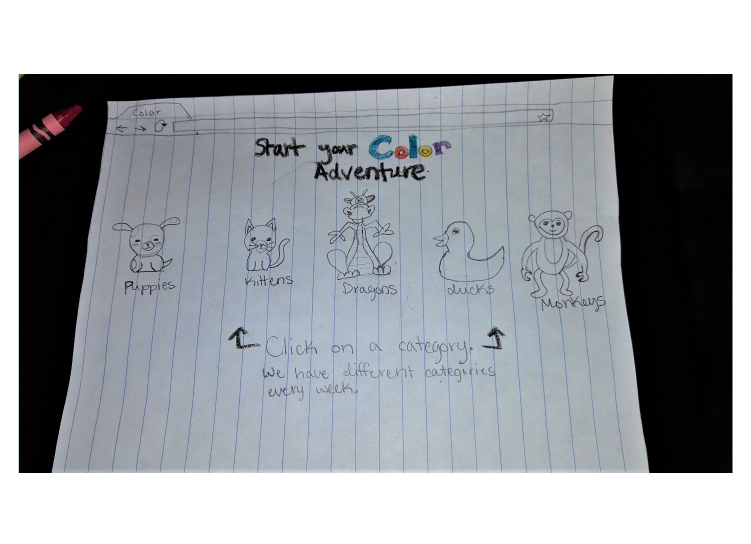 Color
Start your Color
Adventure
Puppies
Kittens
Dragons
ducks
Monkeys
Click on a category.
We have different categories
every week.